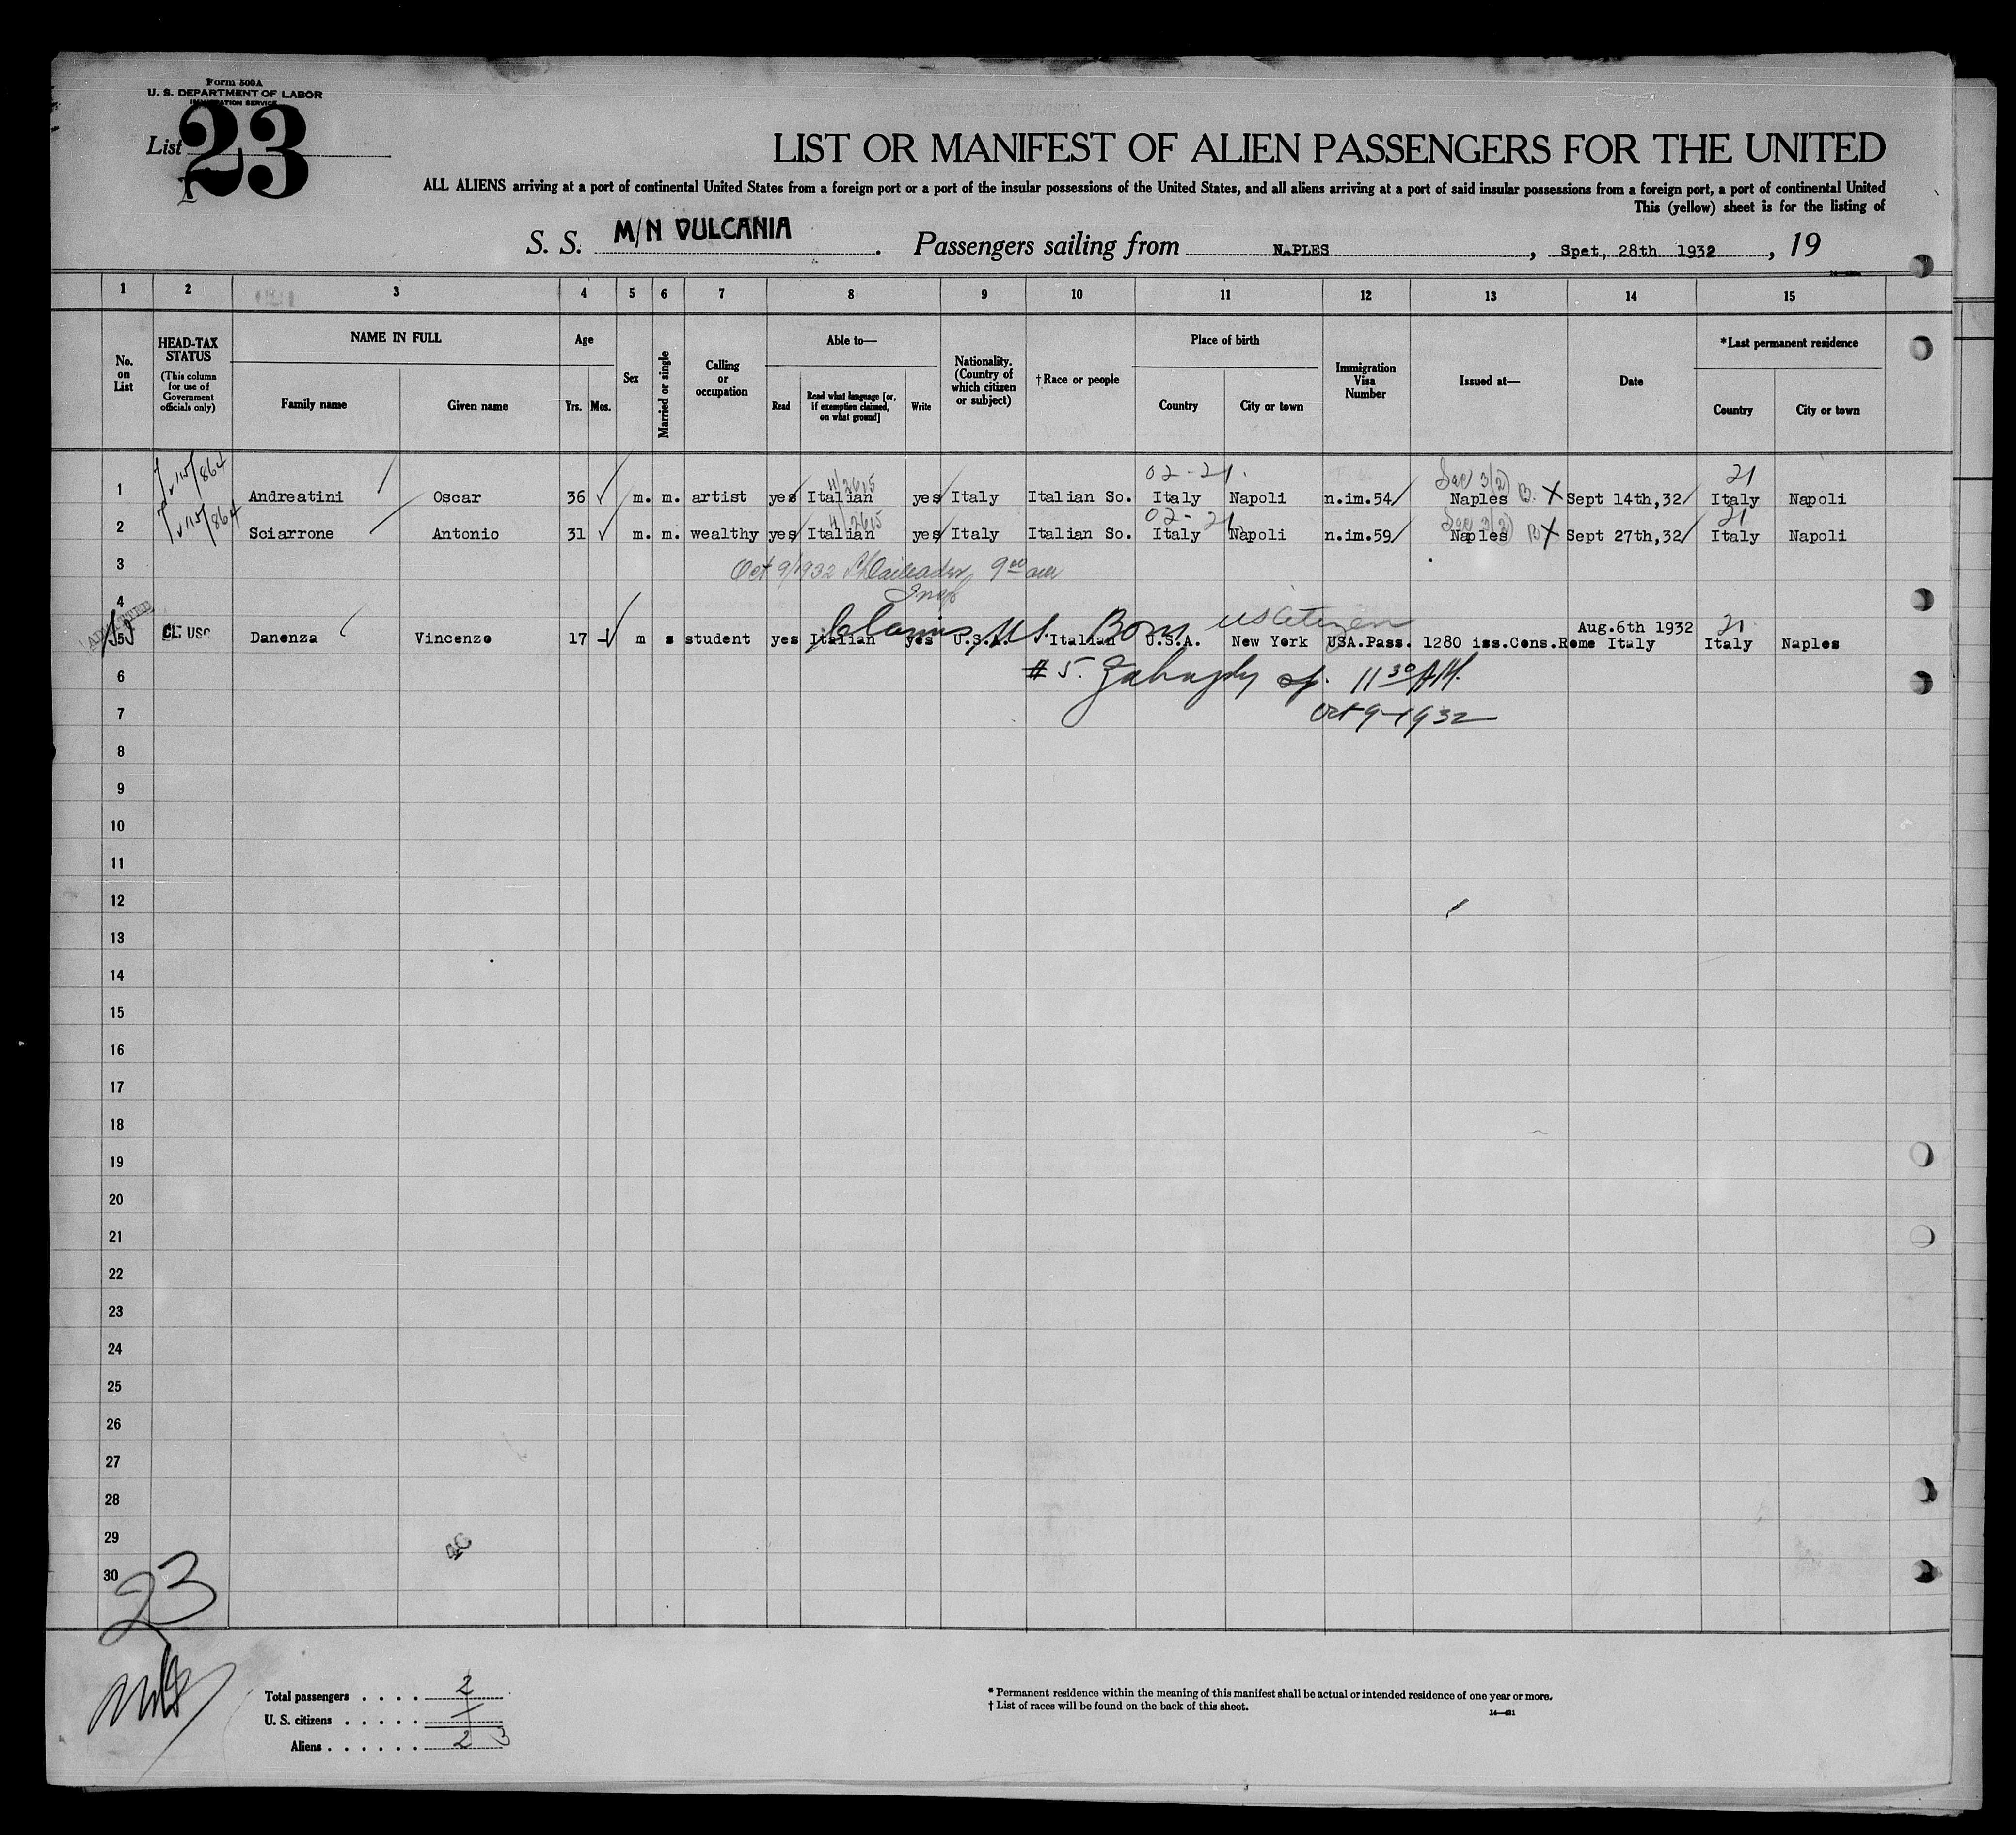 Form 500A
U. S. DEPARTMENT OF LABOR
IMMIGRATION SERVICE
List 23
LIST OR MANIFEST OF ALIEN PASSENGERS FOR THE UNITED
ALL ALIENS arriving at a port of continental United States from a foreign port or a port of the insular possessions of the United States, and all aliens arriving at a port of said insular possessions from a foreign port, a port of continental United
This (yellow) sheet is for the listing of
S. S. M/N VULCANIA . Passengers sailing from NAPLES , Spet, 28th 1932 , 19
1 2 3 4 5 6 7 8 9 10 11 12 13 14 15
No. on List
HEAD-TAX STATUS
(This column for use of Government officials only)
NAME IN FULL
Family name Given name
Age
Yrs. Mos.
Sex
Married or single
Calling or occupation
Able to—
Read
Read what language [or, if exemption claimed, on what ground]
Write
Nationality. (Country of which citizen or subject)
†Race or people
Place of birth
Country City or town
Immigration Visa Number
Issued at—
Date
*Last permanent residence
Country City or town
02-21. 21
1 Andreatini Oscar 36 m. m. artist yes Italian yes Italy Italian So. Italy Napoli n.im.54/ Naples Sept 14th,32/ Italy Napoli
02-21 21
2 Sciarrone Antonio 31 m. m. wealthy yes Italian yes Italy Italian So. Italy Napoli n.im.59/ Naples Sept 27th,32/ Italy Napoli
3
Oct 9/1932 9 00 am
Insp
4
Claims U.S. Born US Citizen
Aug.6th 1932 21
5 CL: USC Danenza Vincenzo 17 m s student yes Italian yes U.S.A. Italian U.S.A. New York USA.Pass. 1280 iss.Cons.Rome Italy Italy Naples
6
# 5. 11 30 AM.
7
Oct 9-1932
8
9
10
11
12
13
14
15
16
17
18
19
20
21
22
23
24
25
26
27
28
29
30
23
Total passengers . . . . 2
U. S. citizens . . . . . 1
Aliens . . . . . . 2 3
* Permanent residence within the meaning of this manifest shall be actual or intended residence of one year or more.
† List of races will be found on the back of this sheet.
14—431